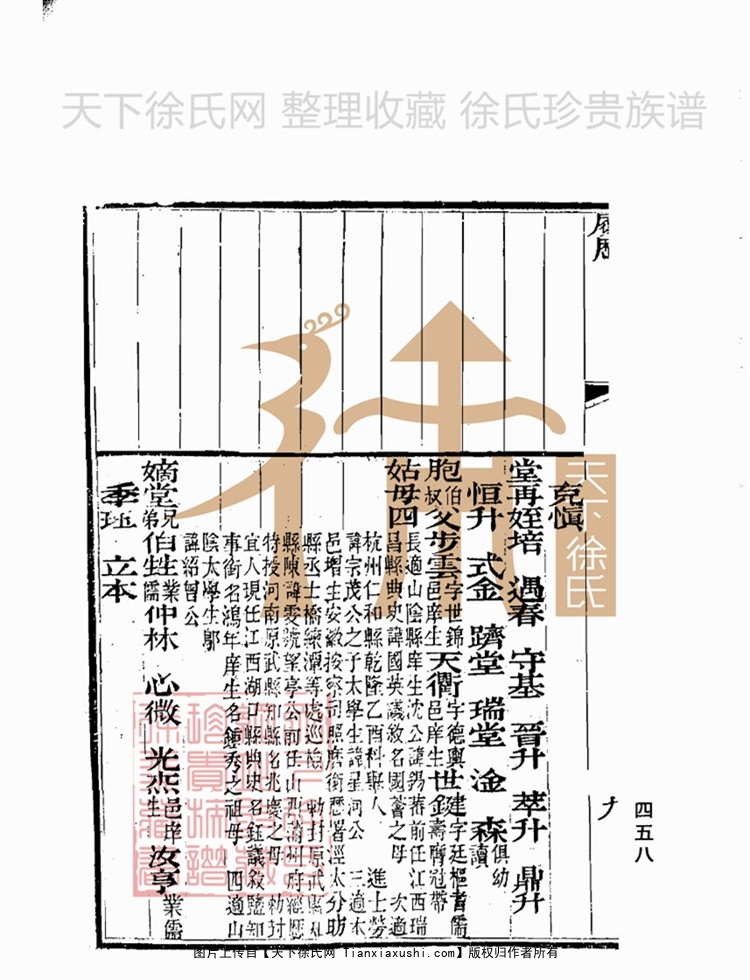 天下徐氏网 整理收藏 徐氏珍贵族谱
履歷
四五八
克愼
堂再姪培 遇春 守基 晉升 萃升 鼎升
恒升 式金 躋堂 瑞堂 淦 森俱幼讀
胞伯叔父步雲字世錦邑庠生天衢字德輿邑庠生世鍵字廷樞耆儒世鏞壽膺冠帶
姑母四長適山陰縣庠生沈公諱錫蕃前任江西瑞
昌縣典史諱國英議敘名國薈之母 次適
杭州仁和縣乾隆乙酉科舉人 進士勞
諱宗茂公之子太學生諱星河公 三適本
邑增生安徽按察司照磨銜歷署涇太分助
縣丞士橋練潭等處巡檢 勅封原武
縣陳諱雯號望亭公前任山西蒲州府經歷
特授河南原武縣知縣名兆慶之母 勅封
宜人現任江西湖口縣典史名鈺議敘鹽知
事銜名鴻年庠生名鍾秀之祖母 四適山
陰太學生鄔
諱紹曾公
嫡堂兄弟伯甡業儒仲林 心微 光焘邑庠生汝亨業儒
季珏 立本
天下徐氏
图片上传自【天下徐氏网 Tianxiaxushi.com】版权归作者所有